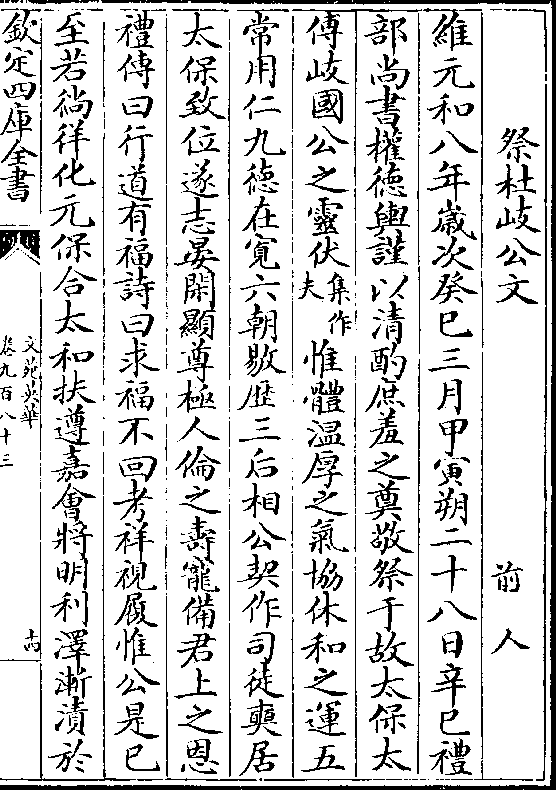 祭杜岐公文 前人
維元和八年歲次癸巳三月甲寅朔二十八日辛巳禮
部尚書權德輿謹以清酌庶羞之奠敬祭于故太保太
傅岐國公之靈伏集作夫惟體温厚之氣協休和之運五
常用仁九德在寛六朝敭歴三后相公契作司徒奭居
太保致位遂志晏閑顯尊極人倫之壽寵備君上之恩
禮傳曰行道有福詩曰求福不回考祥視履惟公是已
至若徜徉化元保合太和扶遵嘉會將明利澤漸漬於
欽定四庫全書
文苑英華
卷九百八十三
十四